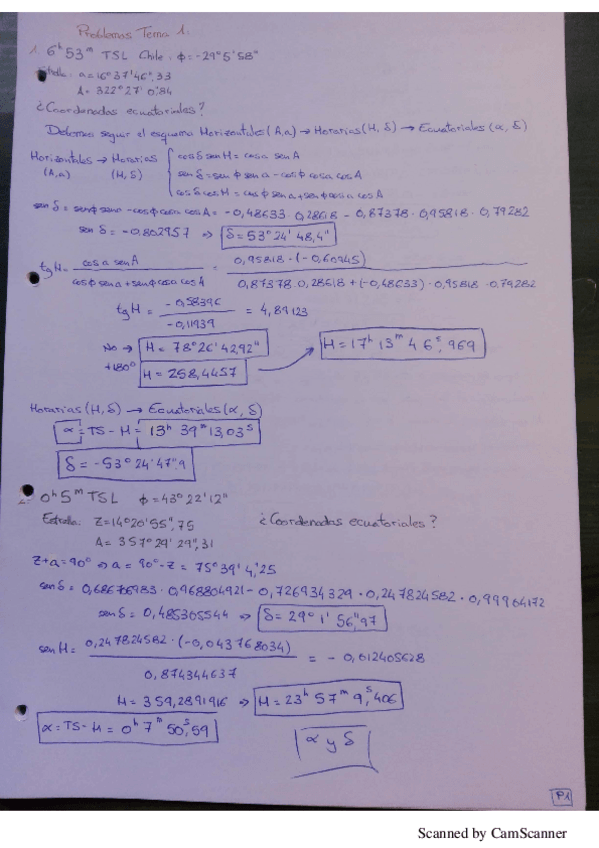 Problemas Tema 1:
1. 6h 53m TSL Chile: φ = -29° 5' 58"
Estrella: a = 16° 37' 46",33
A = 322° 27' 0",84
¿Coordenadas ecuatoriales?
Debemos seguir el esquema Horizontales (A,a) → Horarias (H, δ) → Ecuatoriales (α, δ)
Horizontales → Horarias
(A,a) (H, δ)
cosδ senH = cosa senA
senδ = senφ sena - cosφ cosa cosA
cosδ cosH = cosφ sena + senφ cosa cosA
senδ = senφ sena - cosφ cosa cosA = -0,48633 · 0,28618 - 0,87378 · 0,95818 · 0,79282
senδ = -0,802957 ⇒ δ = 53° 24' 48,4"
tgH = cosa senA / cosφ sena + senφ cosa cosA = 0,95818 · (-0,60945) / 0,87378 · 0,28618 + (-0,48633) · 0,95818 · 0,79282
tgH = -0,58396 / -0,11939 = 4,89123
No → H = 78° 26' 42,92"
+180° H = 258,4457 → H = 17h 13m 46s,969
Horarias (H, δ) → Ecuatoriales (α, δ)
α = TS - H = 13h 39m 13,03s
δ = -53° 24' 47"9
2. 0h 5m TSL φ = 43° 22' 12"
Estrella: Z = 14° 20' 55",75 ¿Coordenadas ecuatoriales?
A = 357° 29' 29",31
Z + a = 90° ⇒ a = 90° - Z = 75° 39' 4,'25
senδ = 0,686706983 · 0,968804921 - 0,726934329 · 0,247824582 · 0,99904172
senδ = 0,485305544 ⇒ δ = 29° 1' 56,"97
senH = 0,247824582 · (-0,043768034) / 0,874344637 = -0,012405628
H = 359,2891916 ⇒ H = 23h 57m 9,s406
α = TS - H = 0h 7m 50,s59
α y δ
P1
Scanned by CamScanner